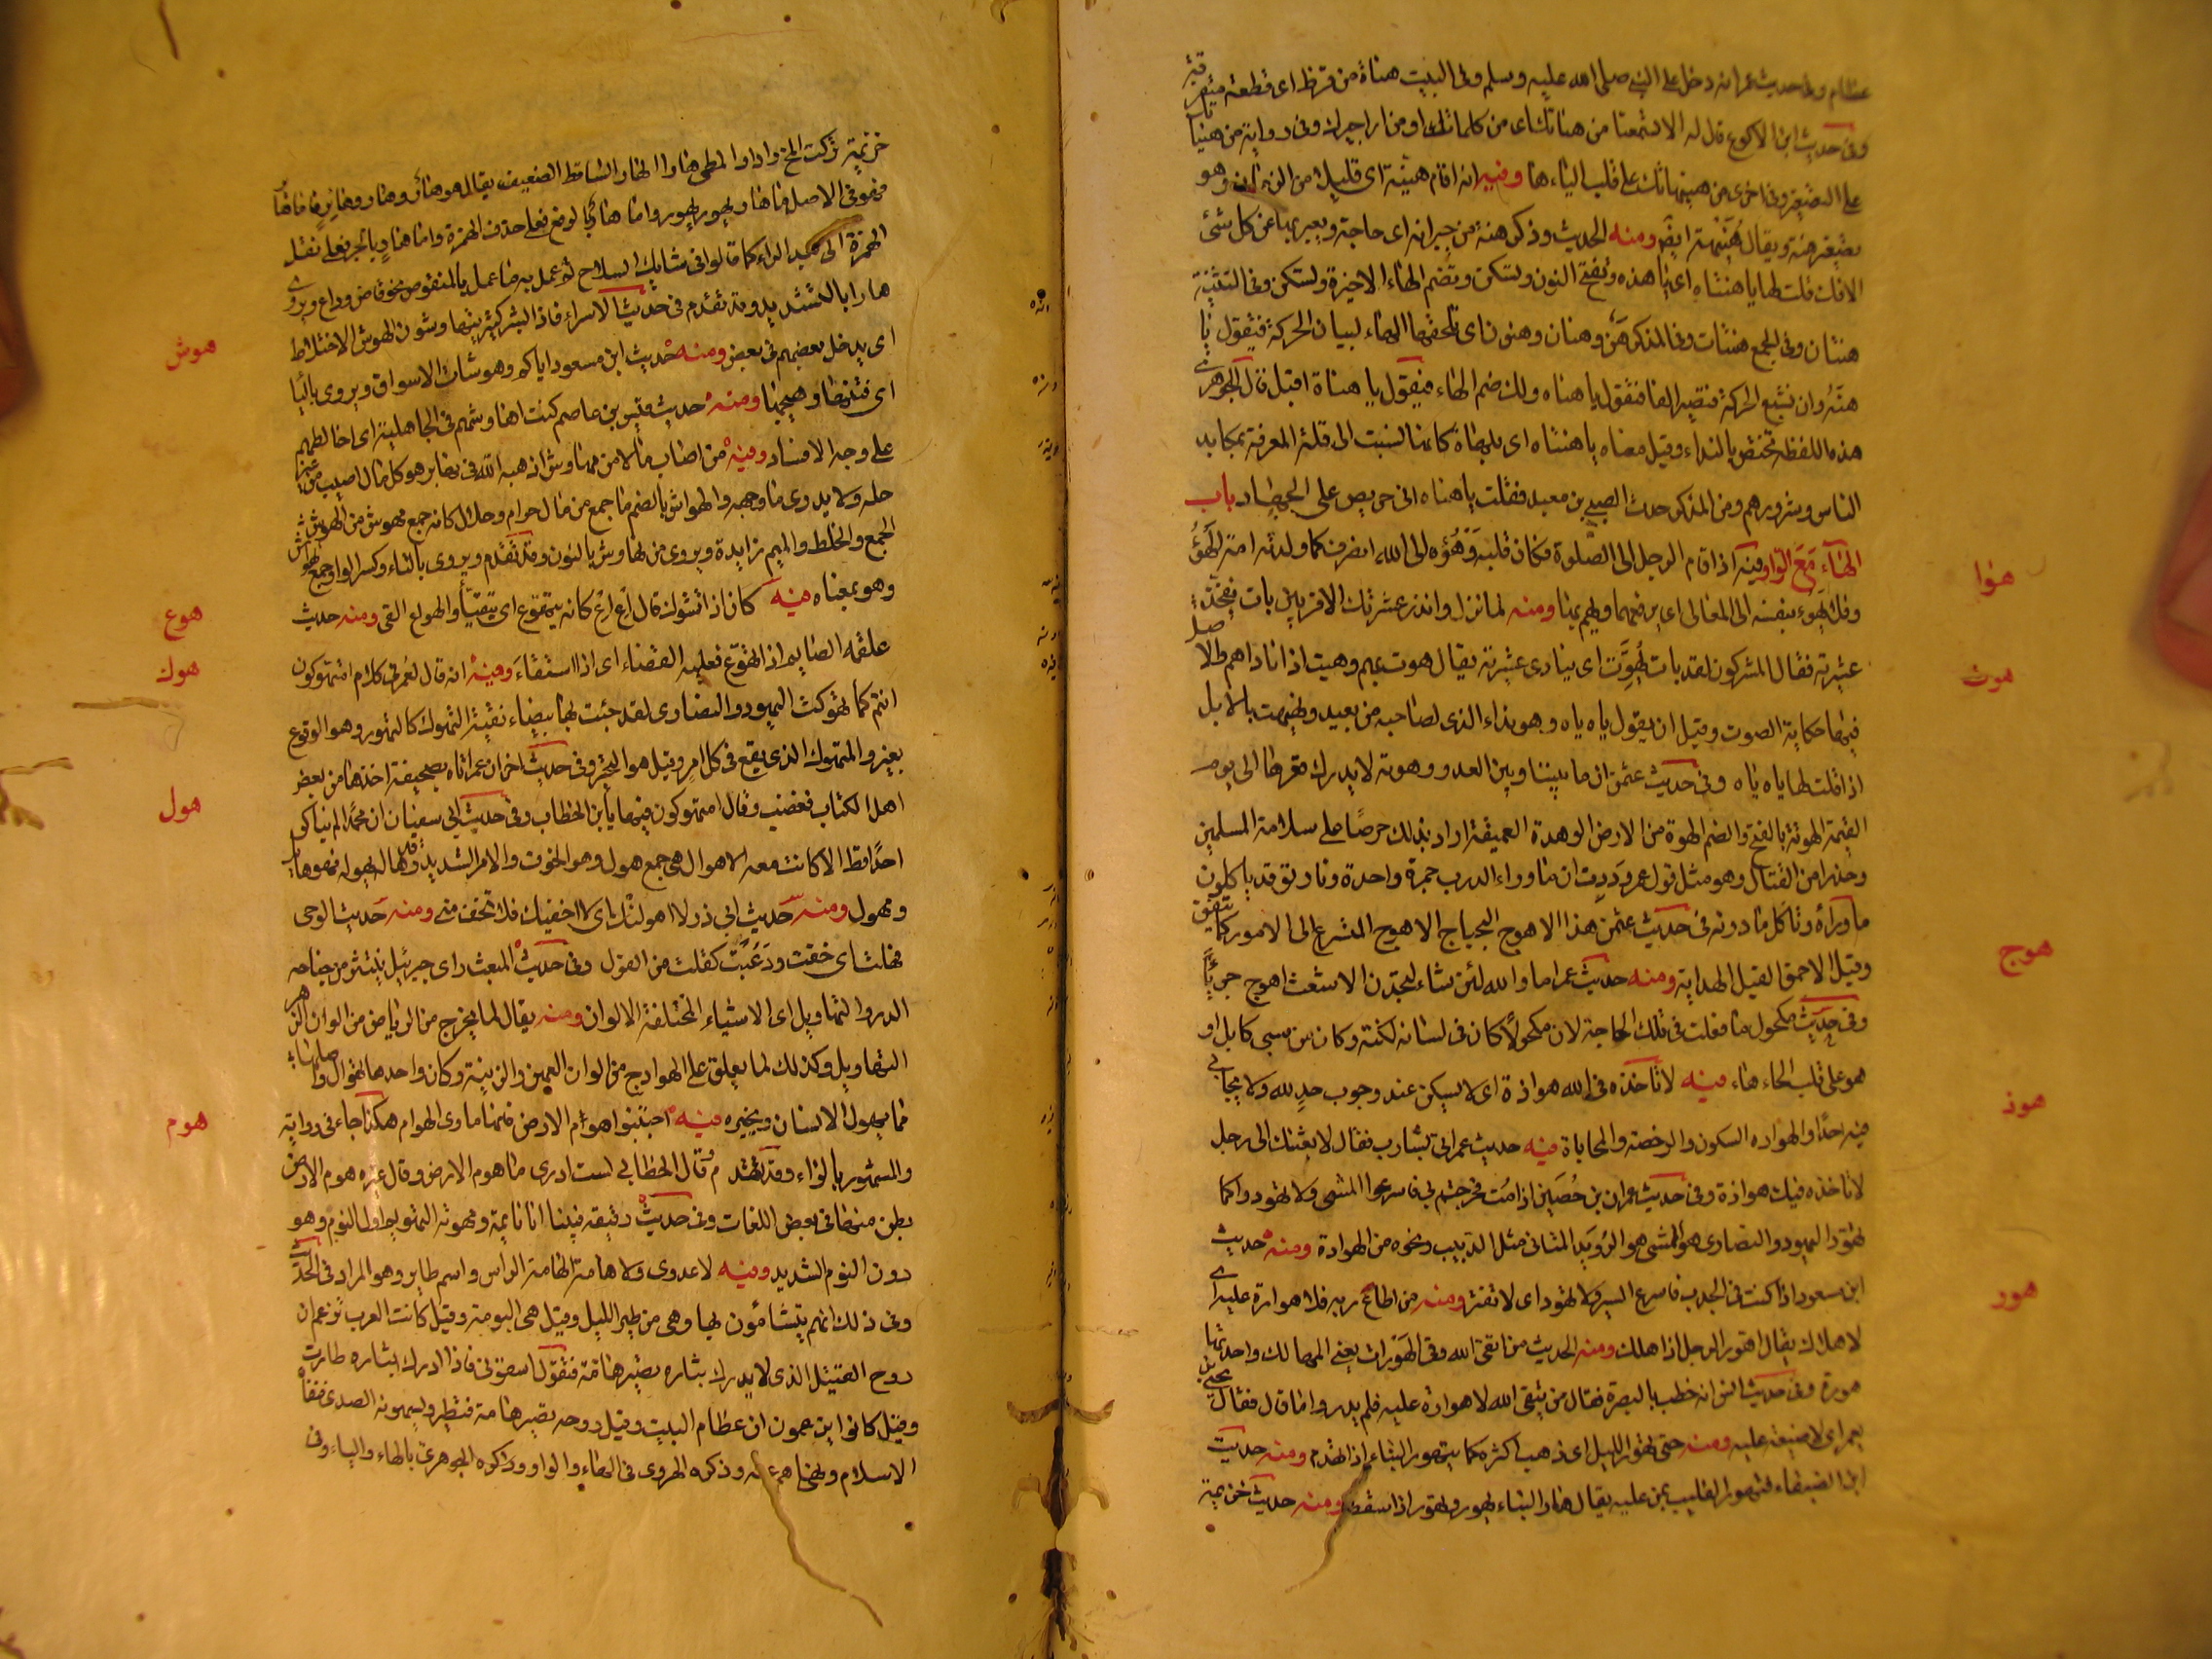 عظام وفى حديث عمر انه دخل على النبى صلى الله عليه وسلم وفى البيت هناة من قرظ اى قطعة متفرقة
وفى حديث ابن الاكوع قال له الا تسمعنا من هناتك اى من كلماتك او من اراجيزك وفى رواية من هنياتك
على التصغير وفى اخرى من هنيهاتك على قلب الياء هاء وفيه انه اقام هنية اى قليلا من الزمان وهو
تصغير هنة ويقال هنيهة ايضا ومنه الحديث وذكر هنة من جيرانه اى حاجة ويعبر بها عن كل شئ
الافك قلت لها يا هنتاه اى يا هذه وتفتح النون وتسكن وتضم الهاء الاخيرة وتسكن وفى التثنية
هنتان وفى الجمع هنتات وفى المذكر هن وهنان وهنون اى تلحقها الهاء لبيان الحركة فتقول يا
هنه وان تشبع الحركة فتصير الفا فتقول يا هناه ولك ضم الهاء فيقول يا هناه اقبل قال الجوهرى
هذه اللفظة تختص بالنداء وقيل معناه يا هنتاه اى بلهاء كانها نسبت الى قلة المعرفة بمكايد
الناس وشرورهم ومن المذكر حديث الصبى بن معبد فقلت يا هناه انى حريص على الجهاد باب
الهاء مع الواو فيه اذا قام الرجل الى الصلوة فكان قلبه وهوءه الى الله انصرف كما ولدته امه الهوء
وفلان يهوء بنفسه الى المعالى اى يرفعها ويهم بها ومنه لما نزل وانذر عشيرتك الاقربين بات يفخذ
عشيرته فقال المشركون لقد بات يهوت اى ينادى عشيرته يقال هوت بهم وهيت اذا ناداهم والاصل
فيها حكاية الصوت وقيل ان يقول ياه ياه وهو نداء الذى لصاحبه من بعيد ويهيهت بالابل
اذا قلت لها ياه ياه وفى حديث عثمن ان ما بيننا وبين العدو وهوتة لا يدرك قعرها الى يوم
القيمة الهوتة بالفتح والضم الهوة من الارض الوهدة العميقة اراد بذلك حرصا على سلامة المسلمين
وحذرا من القتال وهو مثل قول عمر وددت ان ما وراء الدرب جمرة واحدة ونار توقد ياكلون
ما وراءه وناكل ما دونه فى حديث عثمن هذا الاهوج البجباج الاهوج المتسرع الى الامور كما يتفق
وقيل الاحمق القليل الهداية ومنه حديث عمر اما والله لئن شاء لتجدن الاشعث اهوج جريئا
وفى حديث مكحول ما فعلت فى تلك الحاجة لان مكحولا كان فى لسانه لكنة وكان من سبى كابل او
هو على قلب الحاء هاء فيه لا تاخذه فى الله هوادة اى لا يسكن عند وجوب حد لله ولا يحابى
فيه احدا والهواده السكون والرخصة والمحاباة فيه حديث عمر اتى بشارب فقال لابعثنك الى رجل
لا تاخذه فيك هوادة وفى حديث عمران بن حصين اذا مت فخرجتم بى فاسرعوا المشى ولا تهودوا كما
تهود اليهود والنصارى هو المشى هو الرويد المتانى مثل الدبيب ونحوه من الهوادة ومنه حديث
ابن مسعود اذا كنت فى الجدب فاسرع السير ولا تهود اى لا تفتر ومنه من اطاع ربه فلا هوارة عليه اى
لا هلاك يقال اهتور الرجل اذا هلك ومنه الحديث من اتقى الله وقى الهورات يعنى المهالك واحدتها
هورة وفى حديث انس انه خطب بالبصرة فقال من يتقى الله لا هوارة عليه فلم يدروا ما قال فقال يحيى بن
يعمر اى لا ضيعة عليه ومنه حتى تهور الليل اى ذهب اكثره كما يتهور البناء اذا تهدم ومنه حديث
ابن الضبعاء فتهور القليب بمن عليه يقال هار البناء يهور وتهور اذا سقط ومنه حديث خزيمة
هوا
هوت
هوج
هوذ
هور
خزيمة تركت المخ رارا والمطى هارا الهار الساقط الضعيف يقال هو هار وهار وهائر فاما هائر
فهو فى الاصل من هار يهور واما هار بالرفع فعلى حذف الهمزة واما هار بالجر فعلى نقل
الهمزة الى بعد الراء كما قالوا فى شائك السلاح ثم عمل به ما عمل بالمنقوص نحو قاض وداع ويروى
هارا بالتشديد وقد تقدم فى حديث الاسراء فاذا بشر كثير يتهاوشون الهوش الاختلاط
اى يدخل بعضهم فى بعض ومنه حديث ابن مسعود اياكم وهوشات الاسواق ويروى بالياء
اى فتنها وهيجها ومنه حديث قيس بن عاصم كنت اهاوشهم فى الجاهلية اى اخالطهم
على وجه الافساد وفيه من اصاب مالا من مهاوش اذهبه الله فى نهابر هو كل مال اصيب من غير
حله ولا يدرى ما وجهه والهواش بالضم ما جمع من مال حرام وحلال كانه جمع مهوش من الهوش
الجمع والخلط والميم زايدة ويروى من نهاوش بالنون وقد تقدم ويروى بالتاء وكسر الواو جمع تهواش
وهو بمعناه فيه كان اذا تسوك قال اع اع كانه يتهوع اى يتقيأ والهواع القى ومنه حديث
علقمه الصايم اذا تهوع فعليه القضاء اى اذا استقاء وفيه انه قال لعمر فى كلام امتهوكون
انتم كما تهوكت اليهود والنصارى لقد جئت بها بيضاء نقية التهوك كالتهور وهو الوقوع
بغير والمتهوك الذى يقع فى كل امر وقيل هو التحير وفى حديث اخر ان عمر اتاه بصحيفة اخذها من بعض
اهل الكتاب فغضب وقال امتهوكون فيها يابن الخطاب وفى حديث ابى سفيان ان محمدا لم يناكر
احدا قط الا كانت معه الاهوال هى جمع هول وهو الخوف والامر الشديد وقد هاله يهوله فهو هايل
ومهول ومنه حديث ابى ذر لا اهولنك اى لا اخيفك فلا تخف منى ومنه حديث الوحى
فهلت اى خفت ورعبت كقلت من القول وفى حديث المبعث راى جبرئيل ينتثر من جناحه
الدر والتهاويل اى الاشياء المختلفة الالوان ومنه يقال لما يخرج من الرياض من الوان الزهر
التهاويل وكذلك لما يعلق على الهوادج من الوان العهن والزينة وكان واحدها تهوال واصلها
مما يهول الانسان ويحيره فيه اجتنبوا هوم الارض فانها ماوى الهوام هكذا جاء فى رواية
والمشهور بالزاء وقد تقدم قال الخطابى لست ادرى ما هوم الارض وقال غيره هوم الارض
بطن منها فى بعض اللغات وفى حديث رقيقة فبينا انا نايمة ومهومة التهويم اول النوم وهو
دون النوم الشديد وفيه لا عدوى ولا هامة الهامة الراس واسم طاير وهو المراد فى الحديث
وفى ذلك انهم يتشاءمون بها وهى من طير الليل وقيل هى البومة وقيل كانت العرب تزعم ان
روح القتيل الذى لا يدرك بثاره يصير هامة فتقول اسقونى فاذا ادرك بثاره طارت
وقيل كانوا يزعمون ان عظام الميت وقيل روحه تصير هامة فتطير ويسمونه الصدى فنفاه
الاسلام ونهاهم عنه وذكره الهروى فى الهاء والواو وذكره الجوهرى بالهاء والياء وفى
هوش
هوع
هوك
هول
هوم